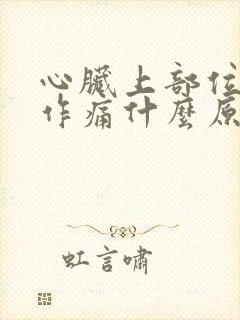 心臟上部位
作痛什麼原
虹言嘯